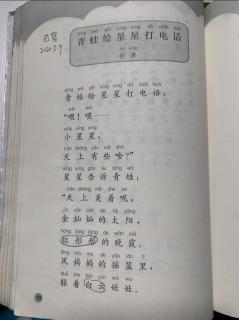 qīng wā gěi xīng xīng dǎ diàn huà
青蛙给星星打电话
qīng wā gěi xīng xīng dǎ diàn huà
青蛙给星星打电话：
wèi wèi
“喂！喂——
xiǎo xīng xīng
小星星，
tiān shàng yǒu xiē shá
天上有些啥？”
xīng xīng gào su qīng wā
星星告诉青蛙：
tiān shàng měi zhe ne
“天上美着呢。
jīn càn càn de tài yáng
金灿灿的太阳，
hóng tóng tóng de wǎn xiá
红彤彤的晚霞。
fēng mā ma de yáo lán lǐ
风妈妈的摇篮里，
tǎng zhe bái yún wá wa
躺着白云娃娃。